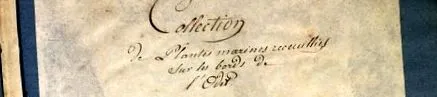 Collection
de Plantes marines recueillies
sur les bords de
l'Odet